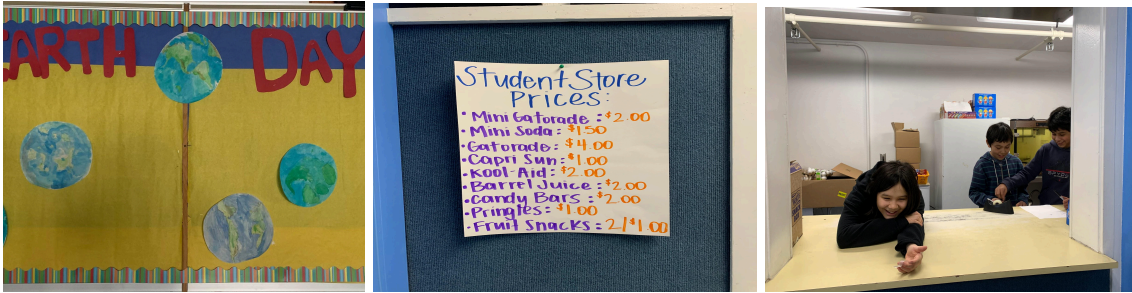 EARTH DAY
Student Store
Prices:
• Mini Gatorade: $2.00
• Mini Soda: $1.50
• Gatorade: $4.00
• Capri Sun: $1.00
• Kool-Aid: $2.00
• Barrel Juice: $2.00
• Candy Bars: $2.00
• Pringles: $1.00
• Fruit Snacks: 2/$1.00